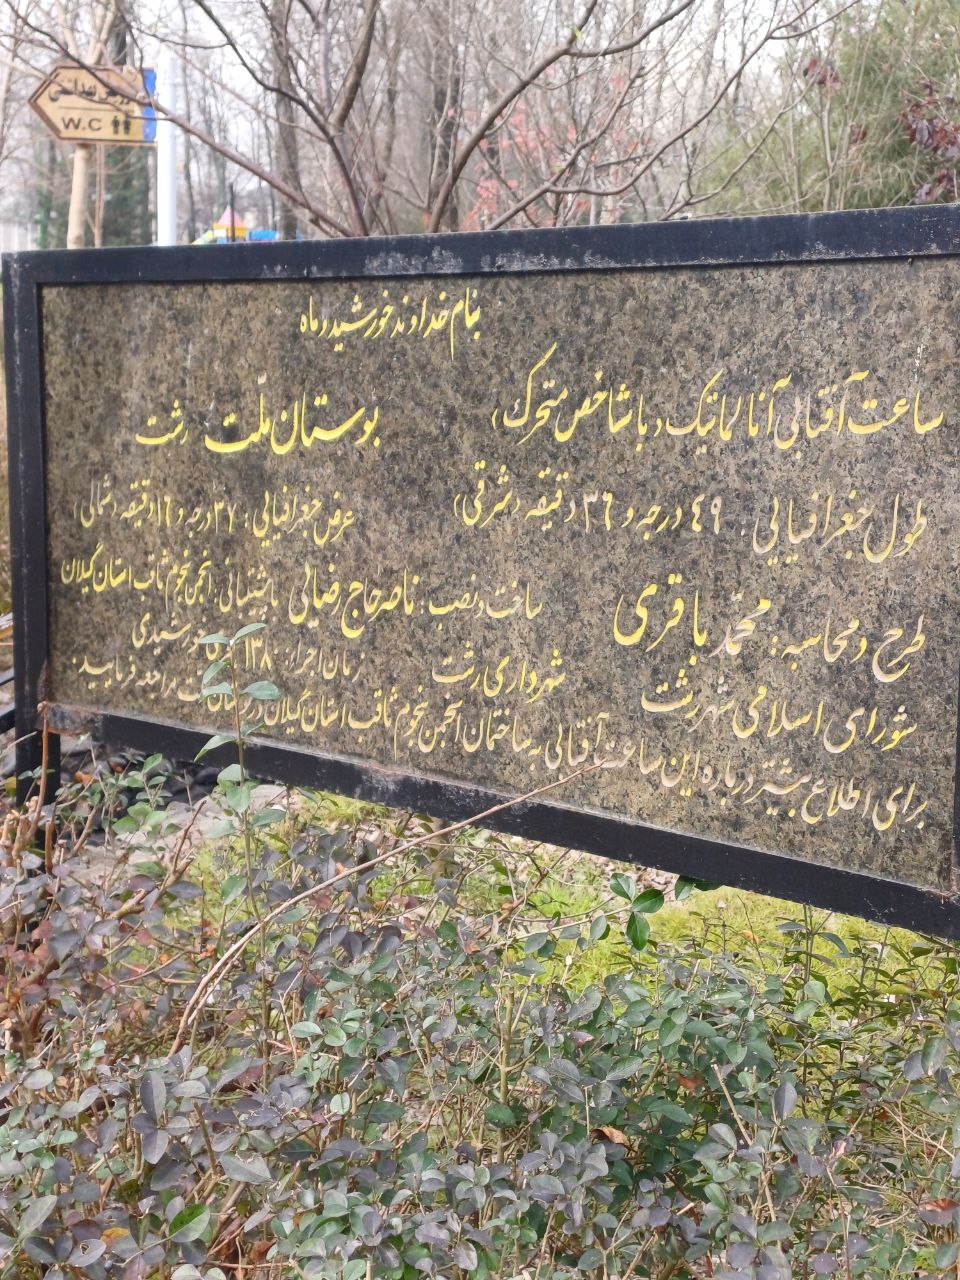 سرویس بهداشتی
W.C
بنام خداوند خورشید و ماه
ساعت آفتابی آنالماتیک (با شاخص متحرک) بوستان ملّت رشت
طول جغرافیایی: ۴۹ درجه و ۳۶ دقیقه (شرقی) عرض جغرافیایی: ۳۷ درجه و ۱۶ دقیقه (شمالی)
طرح و محاسبه: محمّد باقری ساخت و نصب: ناصر حاج رضائی با پشتیبانی: انجمن نجوم ثاقب استان گیلان
شورای اسلامی شهر رشت شهرداری رشت زمان اجرا: خورشیدی
برای اطلاع بیشتر درباره این ساعت آفتابی به ساختمان انجمن نجوم ثاقب استان گیلان در مراجعه فرمایید.